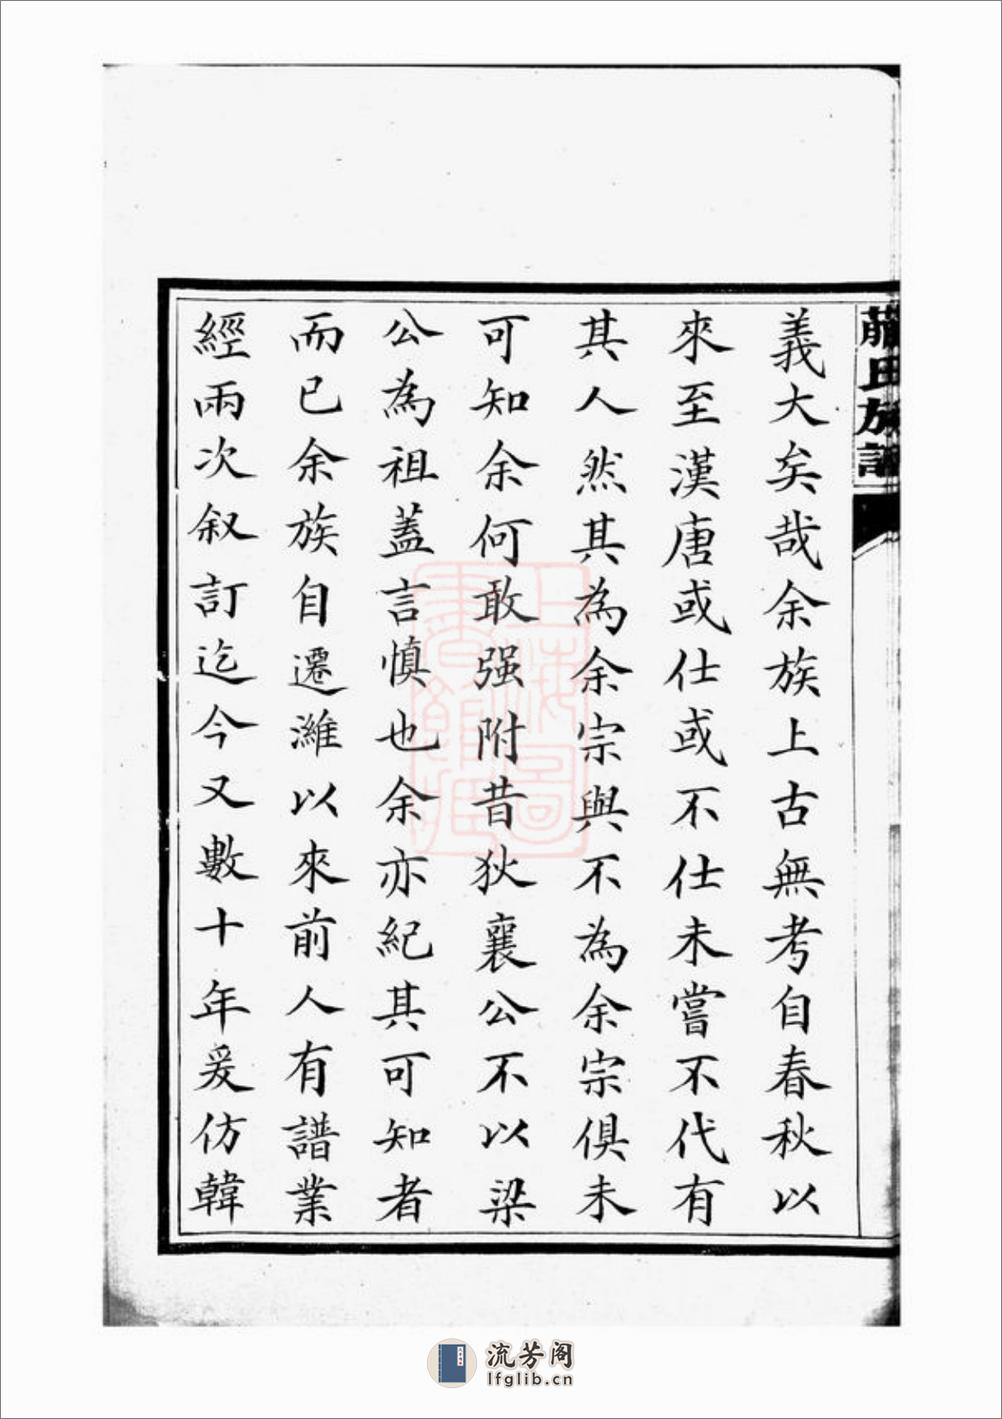 族譜
義大矣哉余族上古無考自春秋以
來至漢唐或仕或不仕未嘗不代有
其人然其為余宗與不為余宗俱未
可知余何敢强附昔狄襄公不以梁
公為祖蓋言慎也余亦紀其可知者
而已余族自遷濰以來前人有譜業
經兩次叙訂迄今又數十年爰仿韓
上海圖
書館藏
流芳阁
lfglib.cn